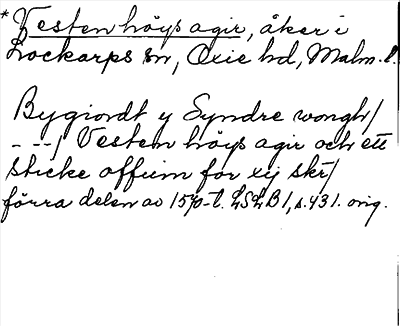 * Vesten höys agir, åker i
Lockarps sn, Oxie hd, Malm. l.
Bygiordt y Syndre wongh/
---/ Vesten höys agir och ett
sticke offuim for xij skr/
förra delen av 1570-t. LSLB1, s. 431. orig.